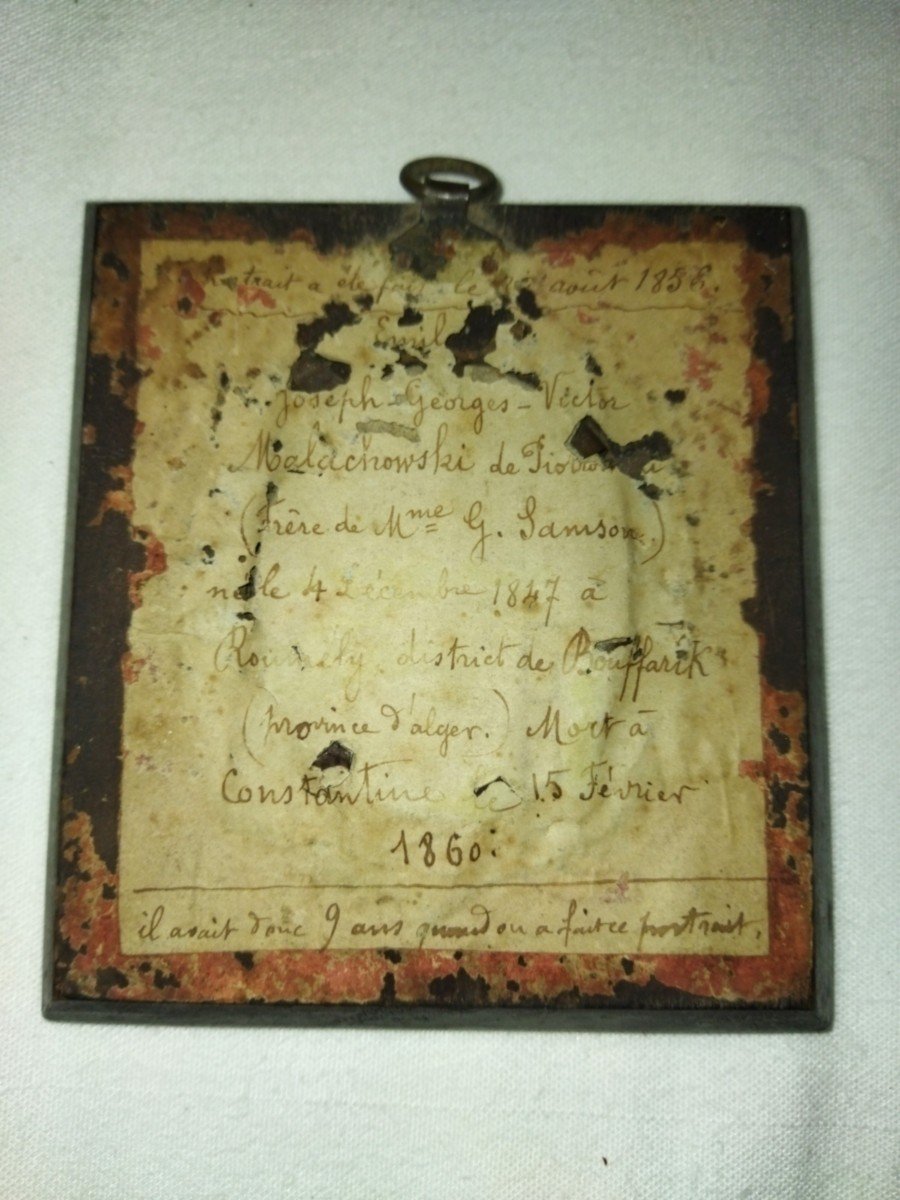 trait a été fait le août 1856.
Emil
Joseph-Georges-Victor
Malachowski de
(Frère de Mme G. Samson.)
né le 4 Décembre 1847 à
district de Bouffarick
(province d'alger.) Mort à
Constantine le 15 Février
1860.
il avait donc 9 ans quand on a fait ce portrait.